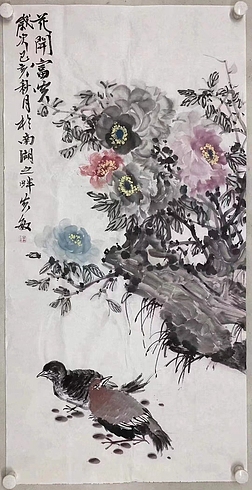 花開富貴
歲次己亥月於南湖之畔敏